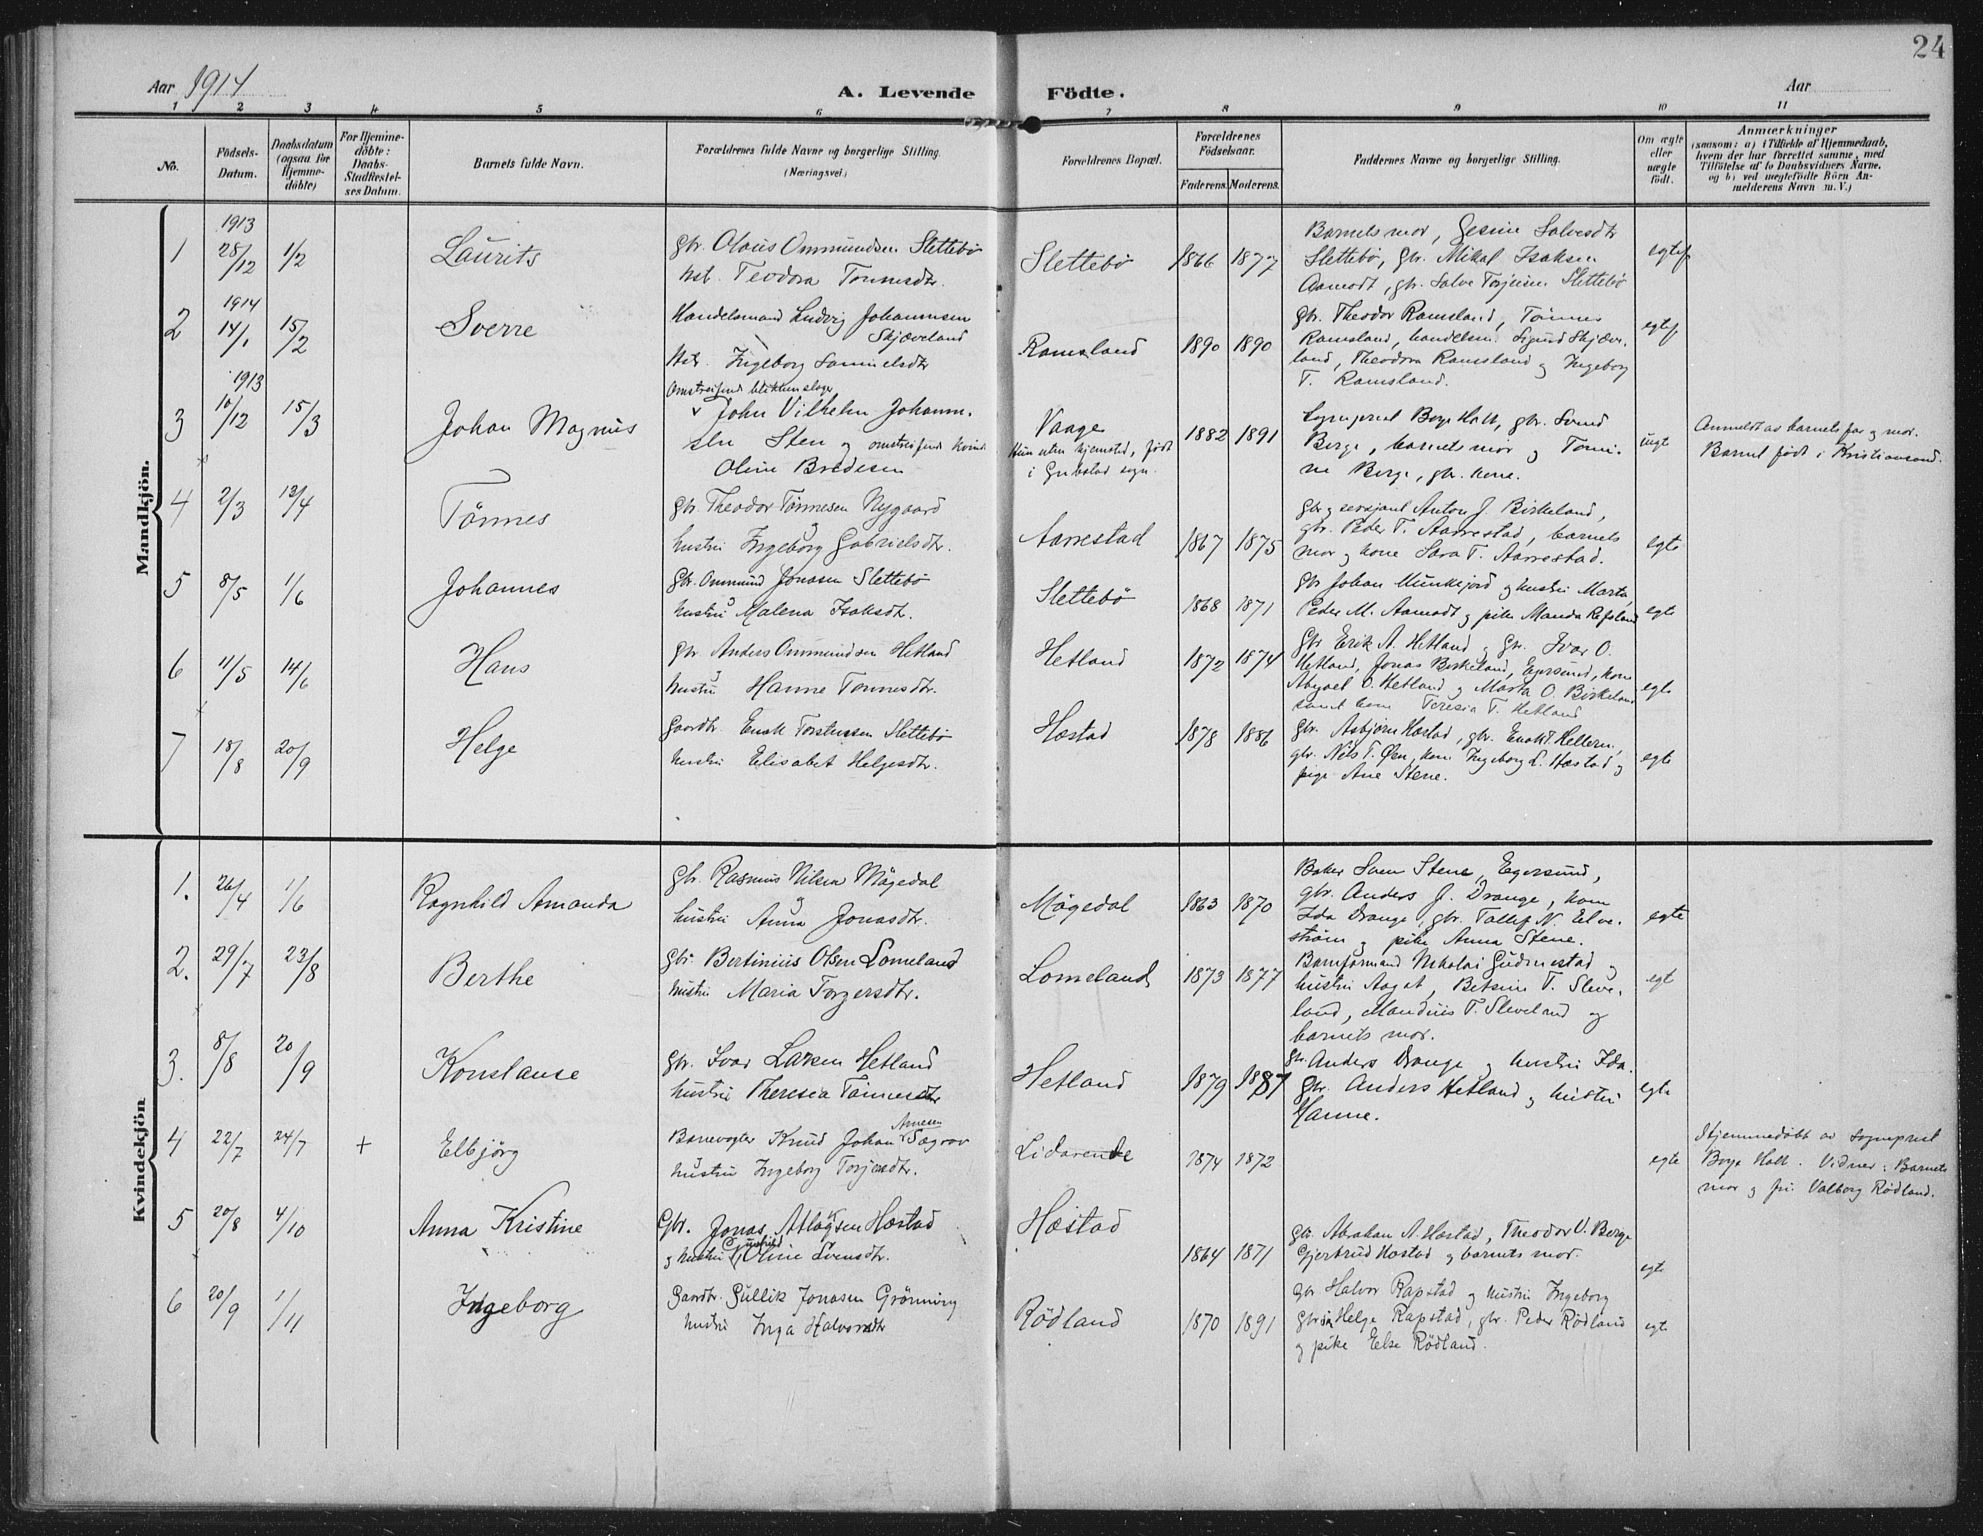 24
Aar 1914
A. Levende Födte.
Aar
1 2 3 4 5 6 7 8 9 10 11
No.
Födsels-Datum.
Daabsdatum (ogsaa for Hjemme-döbte)
For Hjemme-döbte: Daabs-Stadfæstel-ses Datum.
Barnets fulde Navn.
Forældrenes fulde Navne og borgerlige Stilling.
(Næringsvei)
Forældrenes Bopæl.
Forældrenes Födselsaar.
Faderens. Moderens.
Faddernes Navne og borgerlige Stilling.
Om ægte eller uægte födt.
Anmærkninger
(saasom: a) i Tilfælde af Hjemmedaab, hvem der har forrettet samme, med Tilföielse af to Daabsvidners Navne, og b) ved uægtefödte Börn An-melderens Navn m. V.)
Mandkjön.
1913
1 28/12 1/2 Laurits
Gbr. Olaus Ommundsen Slettebö
hst. Teodora Tönnesdtr.
Slettebö 1866 1877
Barnets mor, Gesine Salvesdtr
Slettebö, gbr. Mikal Isaksen
Aamodt, gbr. Salve Torjusen Slettebö
1914
2 14/1 15/2 Sverre
Handelsmand Ludvig Johannesen
Skjæveland
Hst. Ingeborg Samuelsdtr
Ramsland 1890 1890
Gbr. Theodor Ramsland, Tönnes
Ramsland, handelsm. Sigurd Skjæve-
land, Theodora Ramsland og Ingeborg
T. Ramsland.
1913
3 10/12 15/3 Johan Magnus
Omstreifende blikkenslager
John Vilhelm Johann-
sen Sten og omstreifende kvinde
Oline Bredesen
Vaage
Hun uten hjemsted, født
i Gribstad sogn.
1882 1891
Sogneprest Boye Holt, gbr. Svend
Berge, barnets mor og Tomi-
ne Berge, gbr. kone.
uegt
Anmeldt av barnets far og mor.
Barnet født i Kristiansand.
4 2/3 13/4 Tönnes
Gbr. Theodor Tönnesen Nygaard
hustru Ingeborg Gabrielsdtr.
Aarrestad 1867 1875
Gbr og sersjant Anton J. Birkeland,
gbr. Peder T. Aarrestad, barnets
mor og kone Sara T. Aarrestad.
egte
5 8/5 1/6 Johannes
Gbr. Ommund Jonasen Slettebö
hustru Malena Isaksdtr.
Slettebö 1868 1871
Gbr Johan Munkejord og hustru Marta,
Peder M. Aamodt og pike Manda Refsland
egte
6 11/5 14/6 Hans
Gbr. Anders Ommundsen Hetland
hustru Hanne Tönnesdtr.
Hetland 1872 1874
Gbr Erik A. Hetland og Gbr. Ivar O.
Hetland, Jonas Birkeland, Egersund, kone
Abigael O. Hetland og Marta O. Birkeland
samt kone Teresia T. Hetland
egte
7 18/8 20/9 Helge
Gaardbr. Enok Torstensen Slettebö
hustru Elisabet Helgesdtr.
Hæstad 1878 1886
Gbr. Asbjørn Hæstad, gbr. Enok T. Helleren,
gbr. Nils T. Øen, kone Ingeborg L. Hæstad og
pige Ane Stene.
egte
Kvindekjön
1. 26/4 1/6 Ragnhild Amanda
Gbr. Rasmus Nilsen Mögedal
hustru Anna Jonasdtr.
Mögedal 1863 1870
Baker Sven Stene, Egersund,
gbr. Anders J. Drange, kone
Ida Drange, gbr. Tallef N. Elve-
strøm og pike Anna Stene.
egte
2. 29/7 23/8 Berthe
Gbr. Bertinius Olsen Lomeland
hustru Maria Torgersdtr.
Lomeland 1873 1877
Baneformand Nikolai Gudmestad og
hustru Aagot, Betsine T. Sleve-
land, Mandius T. Sleveland og
barnets mor.
egt
3. 8/8 20/9 Konstanse
Gbr. Ivar Larsen Hetland
hustru Theresia Tönnesdtr
Hetland 1879 1887
Gbr. Anders Drange og hustru Ida.
Gbr. Anders Hetland og hustru
Hanne.
egte
4 22/7 24/7 + Elbjörg
Banevogter Knud Johan Arnesen Sægrov
hustru Ingeborg Torjersdtr.
Lidarende 1874 1872
egte
Hjemmedöbt av sogneprest
Boye Holt. Vidner: Barnets
mor og frk. Valborg Rödland.
5 20/8 4/10 Anna Kristine
Gbr. Jonas Atlaksen Hæstad
og hustru Gunhild Oline Svensdtr.
Hæstad 1864 1871
Gbr. Abraham A. Hæstad, Theodor V. Berge
Gjertrud Hæstad og barnets mor.
egte
6 20/9 1/11 Ingeborg
Gaardbr. Gullik Jonasen Grönning
hustru Inga Halvorsdtr
Rödland 1870 1891
Gbr Halvor Rapstad og hustru Ingeborg
Gbr. Helge Rapstad, gbr. Peder Rödland
og pike Else Rödland.
egte